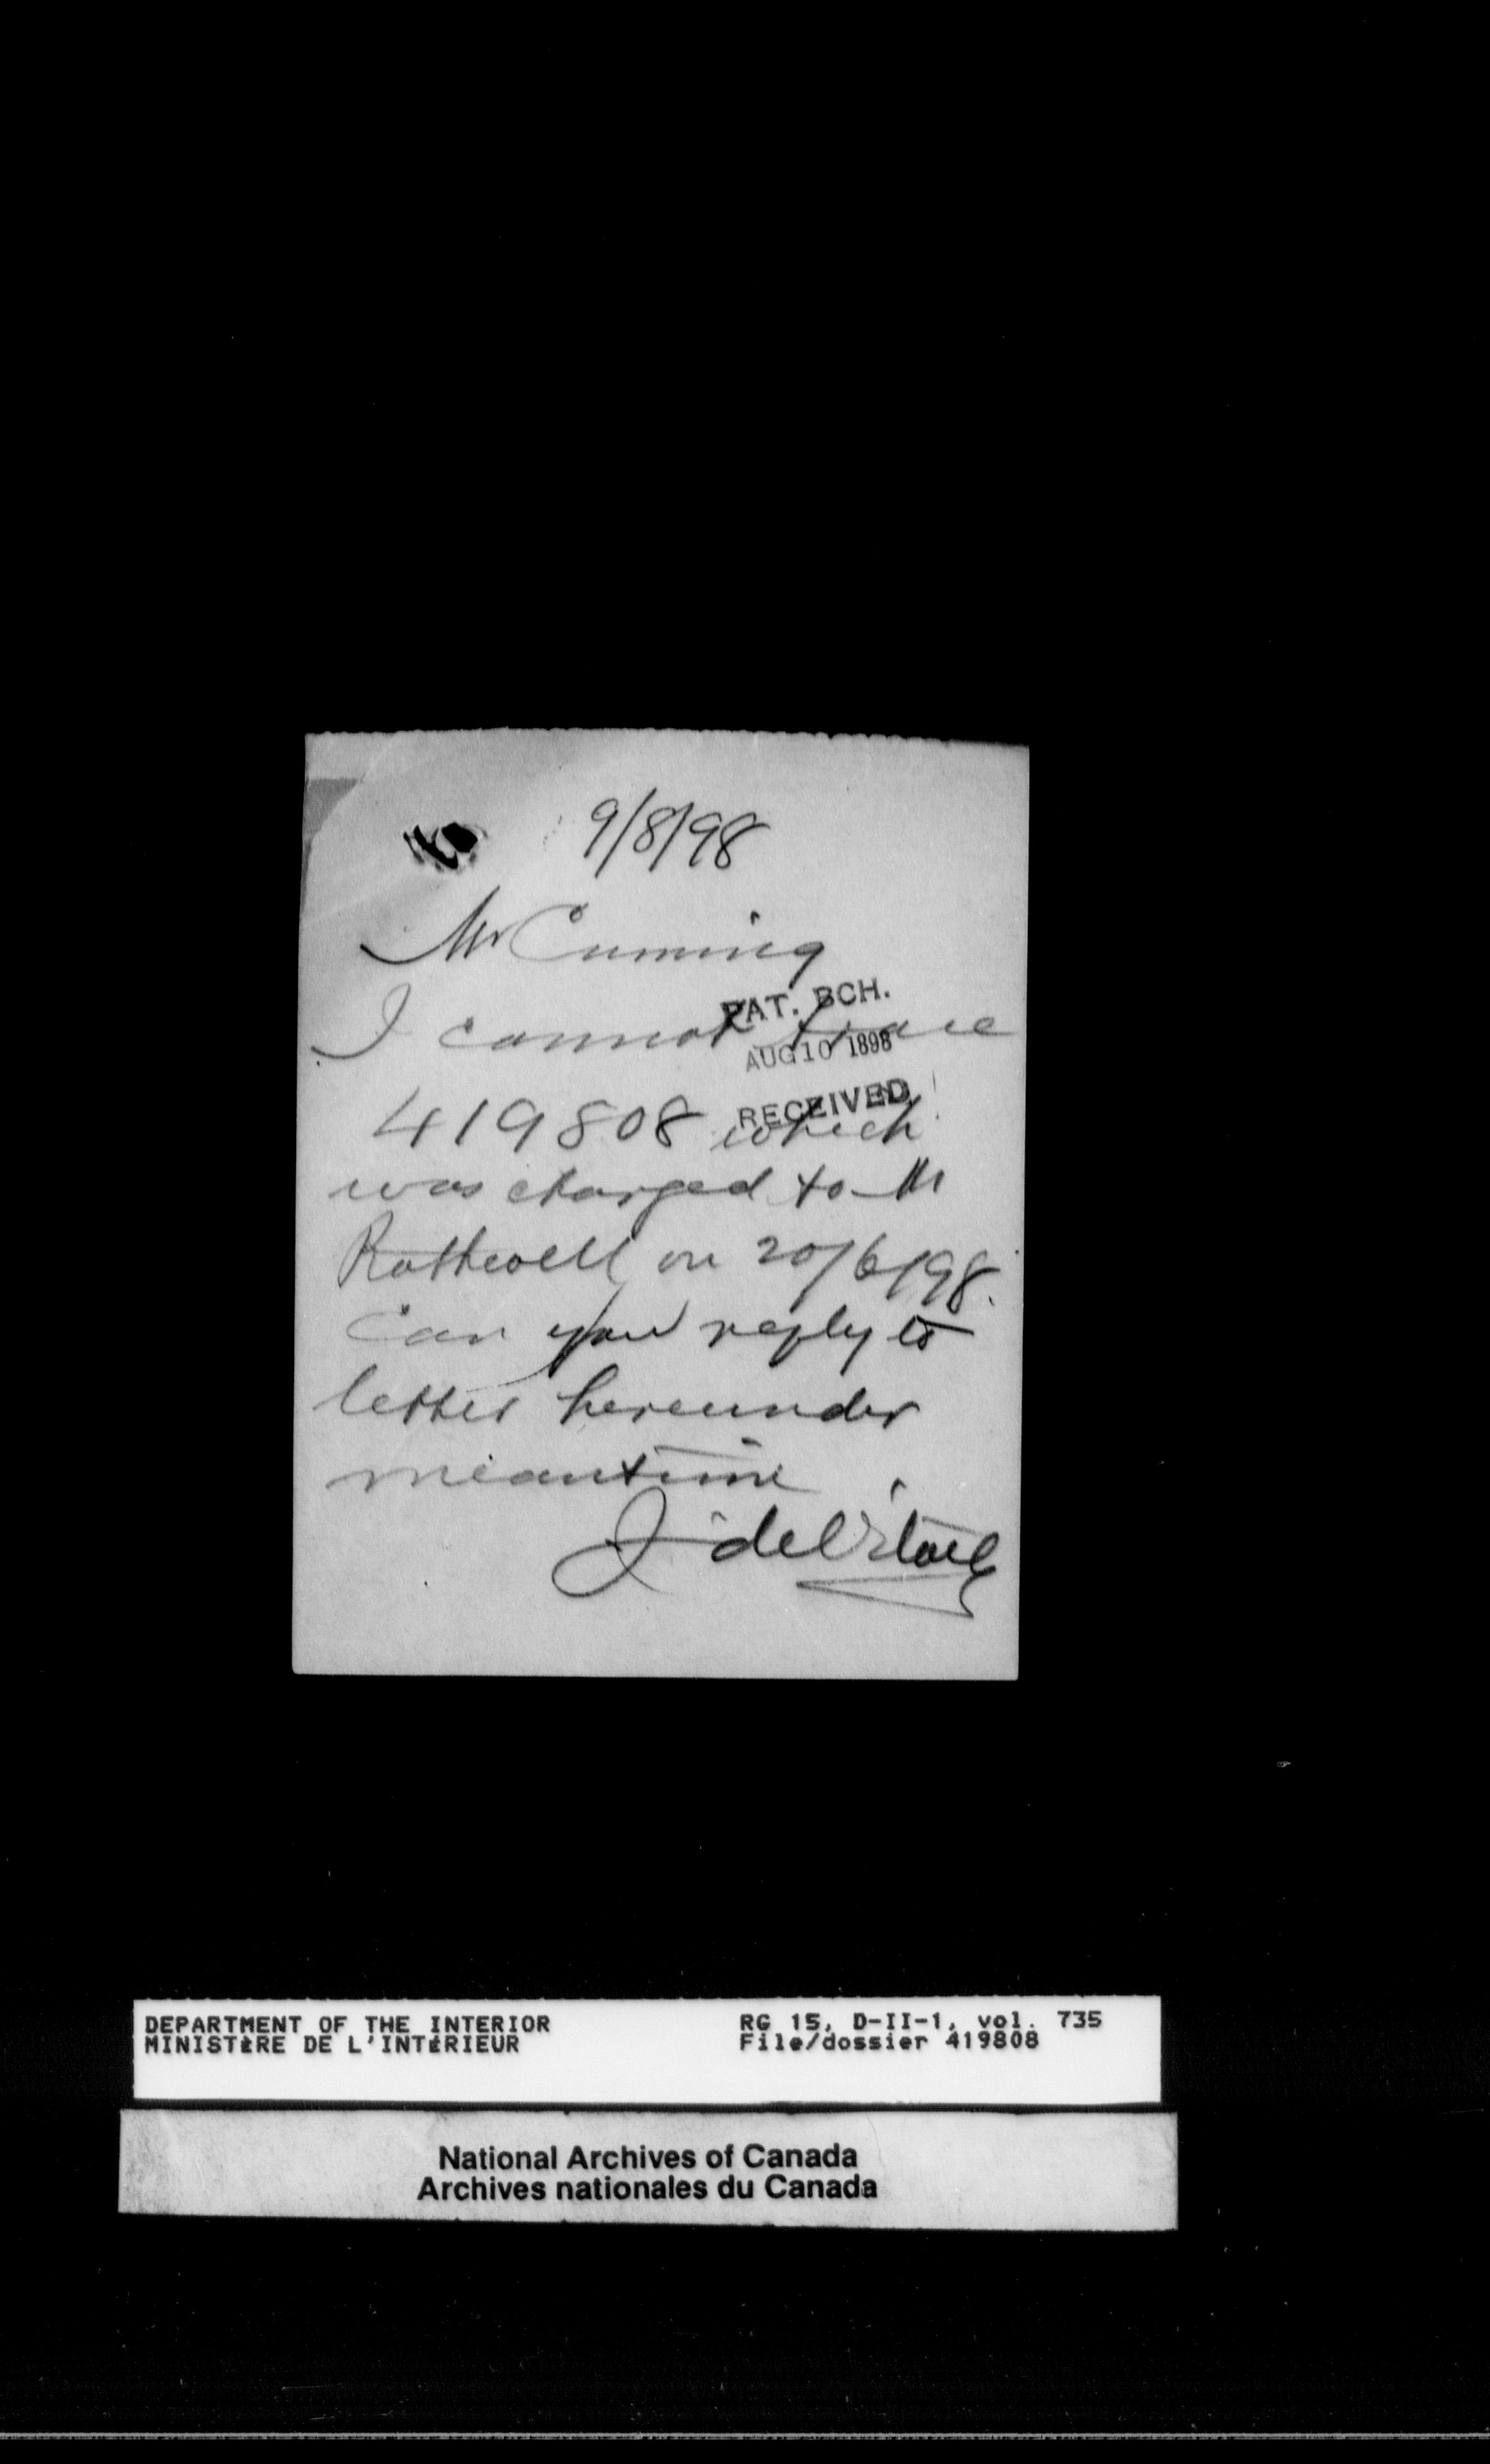 9/8/98
Mr Cumming
I cannot trace
PAT. BCH.
AUG 10 1898
RECEIVED
419808 which
was charged to Mr
Rothwell on 20/6/98.
Can you reply to
letter hereunder
meantime
DEPARTMENT OF THE INTERIOR
MINISTÈRE DE L'INTÉRIEUR
RG 15, D-II-1, vol. 735
File/dossier 419808
National Archives of Canada
Archives nationales du Canada